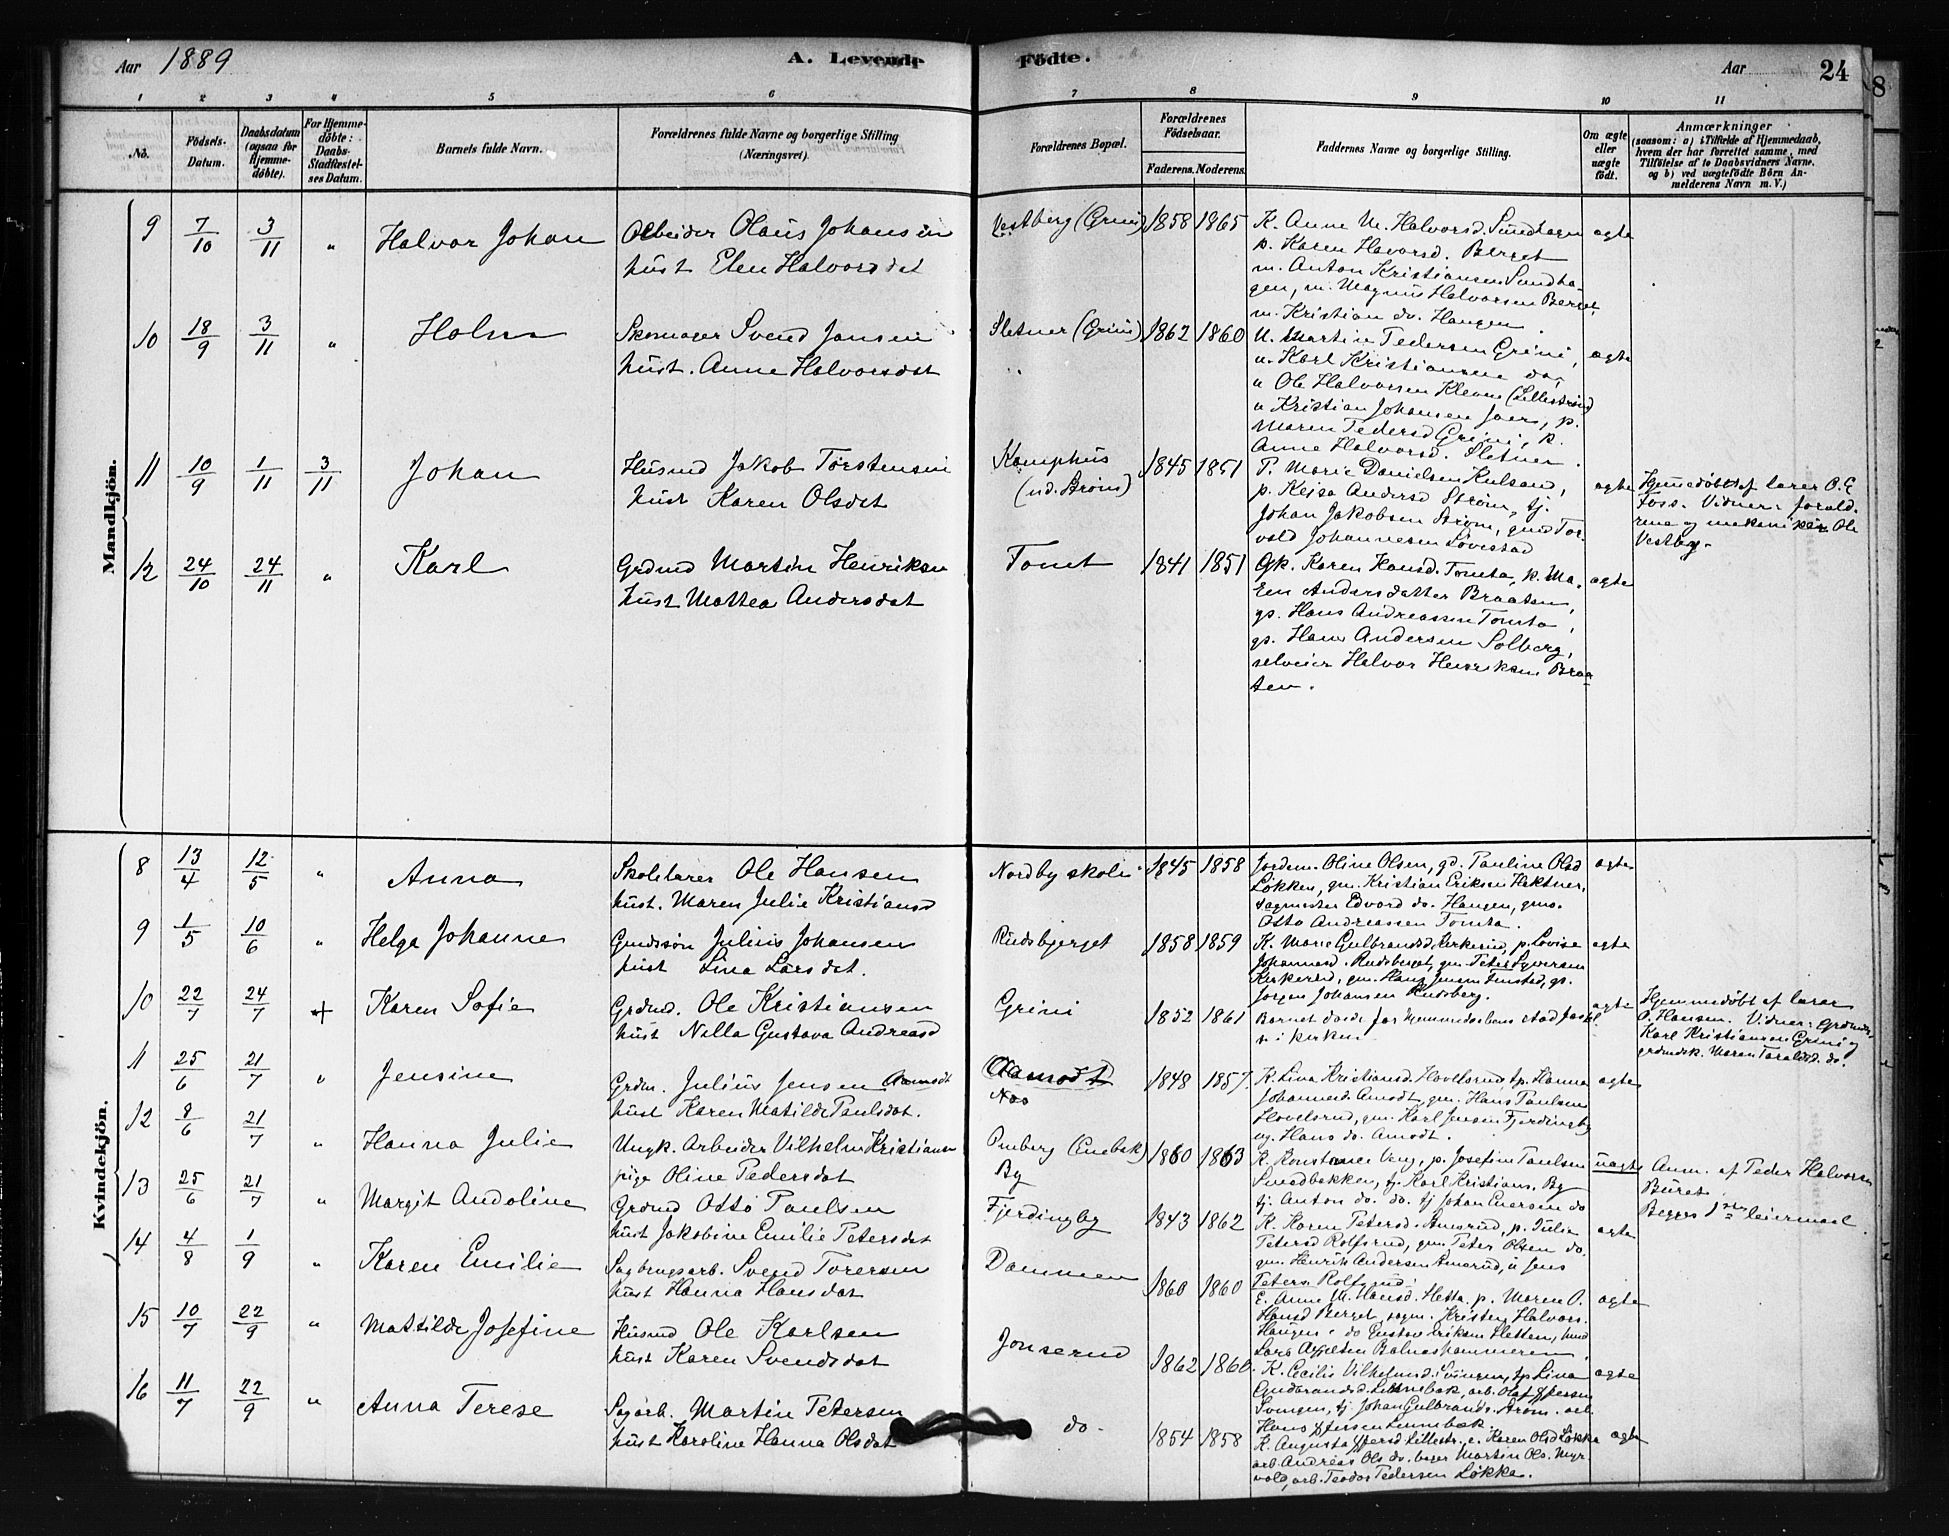 Aar 1889
A. Levende
Födte.
Aar
24
8
1 2 3 4 5 6 7 8 9 10 11
No.
Födsels-
Datum.
Daabsdatum
(ogsaa for
Hjemme-
döbte).
For Hjemme-
döbte:
Daabs-
Stadfæstel-
ses Datum.
Barnets fulde Navn.
Forældrenes fulde Navne og borgerlige Stilling
(Næringsvei).
Forældrenes Bopæl.
Forældrenes
Födselsaar.
Faderens. Moderens.
Faddernes Navne og borgerlige Stilling.
Om ægte
eller
uægte
födt.
Anmærkninger
(saasom: a) i Tilfælde af Hjemmedaab,
hvem der har forrettet samme, med
Tilföielse af to Daabsvidners Navne,
og b) ved uægtefödte Börn An-
melderens Navn m. V.)
Mandkjön.
9 7/10 3/11 " Halvor Johan
Arbeider Olaus Johansen
hust Elen Halvorsdat
Vestberg (Grini) 1858 1865
K. Anne M. Halvorsd. Sundhagen
p. Karen Havorsd. Berget
m. Anton Kristiansen Sundha-
gen, m. Magnus Halvorsen Berget
m. Kristian do. Haugen
ægte
10 18/9 3/11 " Holm
Skomager Svend Jansen
hust. Anne Halvorsdat
Sletner (Grini) 1862 1860
U. Martin Pedersen Grini,
u. Karl Kristiansen do,
u Ole Halvorsen Kleven (Lillestrøm)
u Kristian Johansen Jaer, p.
Maren Pedersd Grini, k.
Anne Halvorsd. Sletner.
ægte
11 10/9 1/11 3/11 Johan
Husmd Jakob Torstensen
hust Karen Olsdat
Kamphus
(nd. Strøm)
1845 1851
P. Marie Danielsen
p. Kejsa Andersd Strøm, tj.
Johan Jakobsen Strøm, gmd Tor-
vald Johannesen Løvestad
ægte
Hjemmedøbt af lærer O. E
Foss. Vidner: foræld-
rene og Ole
Vestby.
12 24/10 24/11 " Karl
Grdmd Martin Henriksen
hust Mathea Andersdat
Tomt 1841 1851
Gk. Karen Hansd. Tomta, k. Ma-
ren Andersdatter Braaten,
gs. Hans Andreassen Tomta,
gs. Hans Andersen Solberg,
selveier Halvor Henriksen Braa-
ten.
ægte
Kvindekjön.
8 13/4 12/5 " Anna
Skolelærer Ole Hansen
hust. Maren Julie Kristiansd
Nordby skole 1845 1858
Jordem. Oline Olsen, gd. Pauline Olsd
Løkken, gm. Kristian Eriksen Hektner,
sagmester Edvard do. Haugen, gms.
Otto Andreassen Tomta.
ægte
9 1/5 10/6 " Helga Johanne
Grmdssøn Julius Johansen
hust Lina Larsdat.
Rudsbjerget 1858 1859
K. Marie Gulbrandsd Kirkerud, p. Lovise
Johannesd. Rudsberget, gm. Peter Syversen
Kirkerud, gm. Hans Jensen Finstad, gs.
Jørgen Johansen Rudsberg.
ægte
10 22/7 24/7 + Karen Sofie
Grdmd. Ole Kristiansen
hust Nilla Gustava Andreasd
Grini 1852 1861
Barnet døde før hjemmedaabens stadfæstel-
se i kirken
ægte
Hjemmedøbt af lærer
O. Hansen. Vidner: Grdmd
Karl Kristiansen Grini og
grdmdsk. Maren do.
11 25/6 21/7 " Jensine
Grdm. Julius Jensen Aamodt
hust Karen Matilde Paulsdat.
Aamodt
Nos
1848 1857
K. Lina Kristiansd. Hovelsrud tp. Hanna
Johannesd. Amodt, gm. Hans Paulsen
Hovelsrud, gm. Karl Jensen Fjerdingby
og Hans do. Amodt.
ægte
12 8/6 21/7 " Hanna Julie
Ungk. Arbeider Vilhelm Kristiansen
pige Oline Pedersdat
(Enebak)
By
1860 1863
K. Konstance Veng, p. Josefine Paulsen
Karl Kristians. By
tj. Anton do. do. tj Johan Eversen do
uægte
Anm. af Peder Halvorsen
Buret.
Begges 1ste leiermaal
13 25/6 21/7 " Margit Andoline
Grdmd Otto Paulsen
hust Jakobine Emilie Petersdat
Fjerdingby 1843 1862
K. Karen Petersd. Amsrud, p. Julie
Petersd Rolfsrud, gm. Peter Olsen do.
gm. Henrik Andersen Amsrud, u Jens
Peters. Rolfsrud.
ægte
14 4/8 1/9 " Karen Emilie
Sagbrugsarb. Svend Toresen
hust Hanna Hansdat
Dammen 1860 1860
E. Anne M. Hansd. Sletta, p. Maren O.
Hansd Berget, Kristen Halvors.
Haugen, do Gustav Eriksen Sletten,
Lars
ægte
15 10/7 22/9 " Mathilde Josefine
Husmd Ole Karlsen
hust Karen Svendsdat
Jonserud 1862 1860
K. Cecilie Vilhelmsd. Svingen, tp Lina
Gudbrandsd. arb. Olaf
Svingen, tj Johan Gulbrands. Strøm. arb.
Hans
ægte
16 11/7 22/9 " Anna Terese
Sagarb. Martin Petersen
hust Karoline Hanna Olsdat
do. 1854 1858
K. Augusta Lillestr. e. Karen Olsd Løkka
arb. Andreas Ols do. Martin Ols. Myr-
vold, arb. Teodor Pedersen Løkka.
ægte